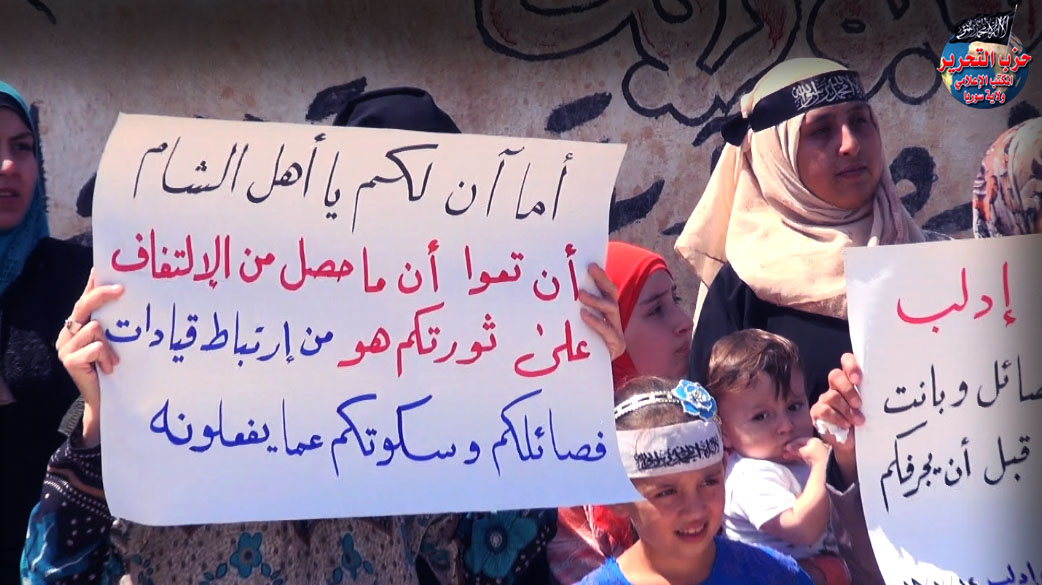 حزب التحرير
المكتب الإعلامي
ولاية سوريا
أما آن لكم يا أهل الشام
أن تعوا أن ما حصل من الإلتفاف
على ثورتكم هو من إرتباط قيادات
فصائلكم وسكوتكم عما يفعلونه
إدلب
صائل وبانت
قبل أن يجرفكم